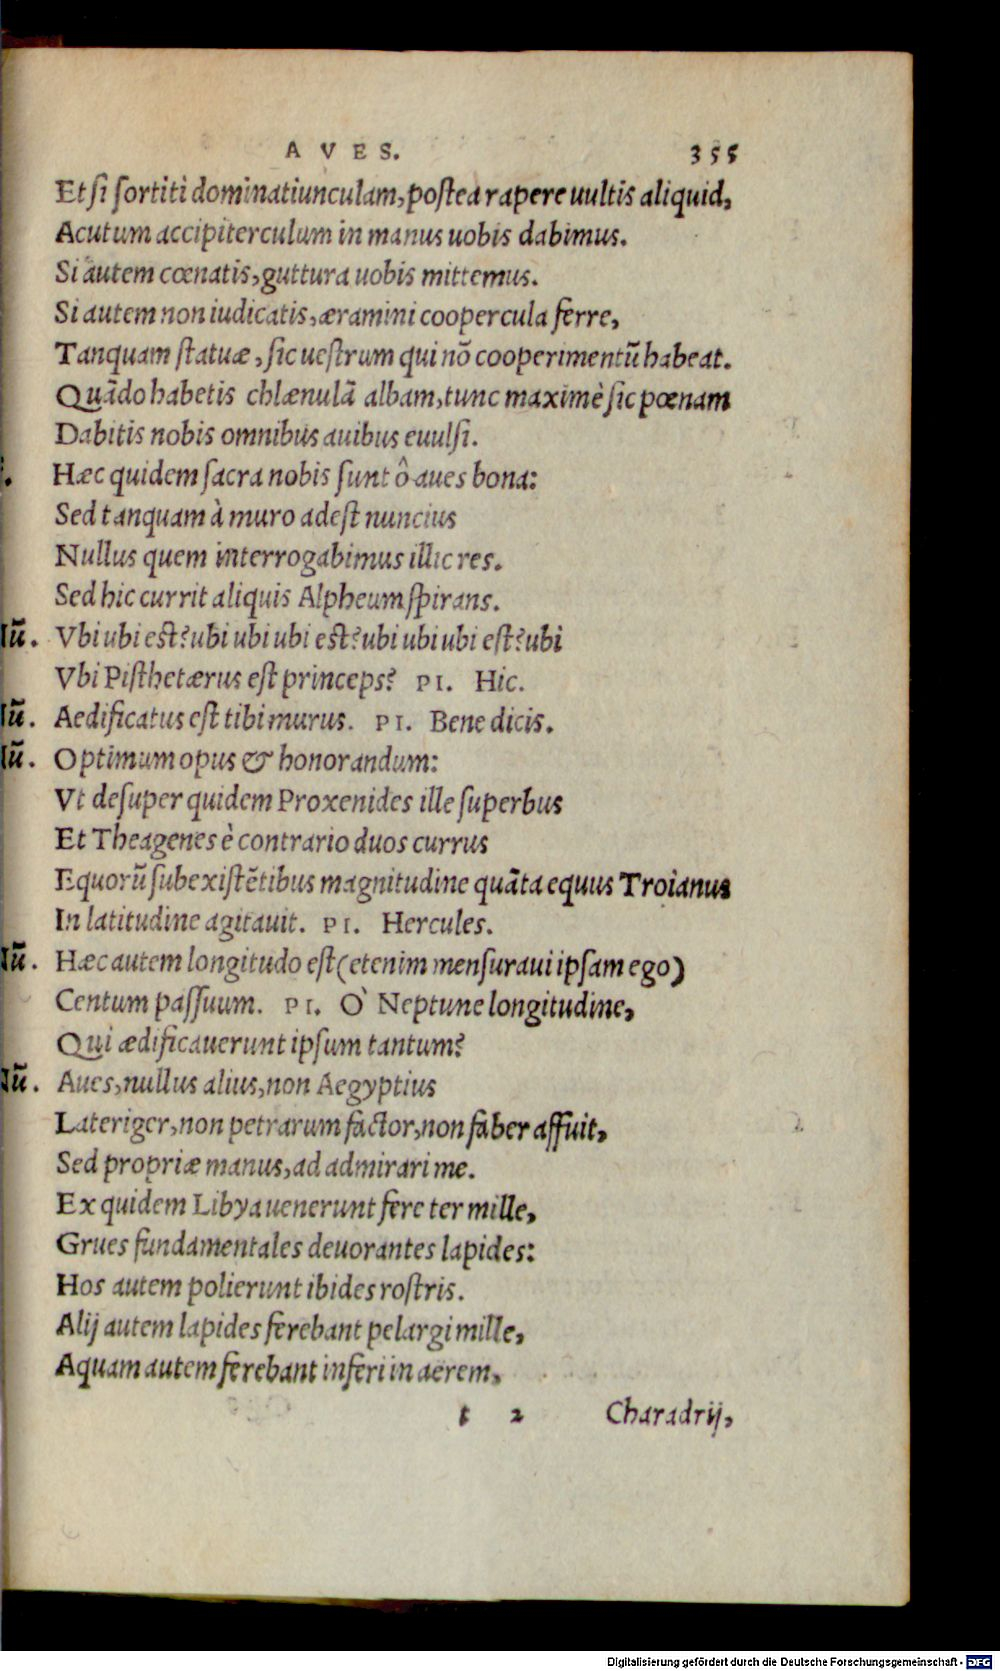 AVES. 355
Et si sortiti dominatiunculam, postea rapere uultis aliquid,
Acutum accipiterculum in manus uobis dabimus.
Si autem cœnatis, guttura uobis mittemus.
Si autem non iudicatis, æramini coopercula ferre,
Tanquam statuæ, sic uestrum qui nō cooperimentū habeat.
Quādo habetis chlænulā albam, tunc maximè sic pœnam
Dabitis nobis omnibus auibus euulsi.
Hæc quidem sacra nobis sunt ô aues bona:
Sed tanquam à muro adest nuncius
Nullus quem interrogabimus illic res.
Sed hic currit aliquis Alpheum spirans.
Iū. Vbi ubi est? ubi ubi ubi est? ubi ubi ubi est? ubi
Vbi Pisthetærus est princeps? PI. Hic.
Iū. Aedificatus est tibi murus. PI. Bene dicis.
Iū. Optimum opus & honorandum:
Vt desuper quidem Proxenides ille superbus
Et Theagenes è contrario duos currus
Equorū subexistētibus magnitudine quāta equus Troianus
In latitudine agitauit. PI. Hercules.
Iū. Hæc autem longitudo est (etenim mensuraui ipsam ego)
Centum passuum. PI. Ò Neptune longitudine,
Qui ædificauerunt ipsum tantum?
Iū. Aues, nullus alius, non Aegyptius
Lateriger, non petrarum factor, non faber affuit,
Sed propriæ manus, ad admirari me.
Ex quidem Libya uenerunt fere ter mille,
Grues fundamentales deuorantes lapides:
Hos autem polierunt ibides rostris.
Alij autem lapides ferebant pelargi mille,
Aquam autem ferebant inferi in aerem,
t 2 Charadrij,
Digitalisierung gefördert durch die Deutsche Forschungsgemeinschaft - DFG